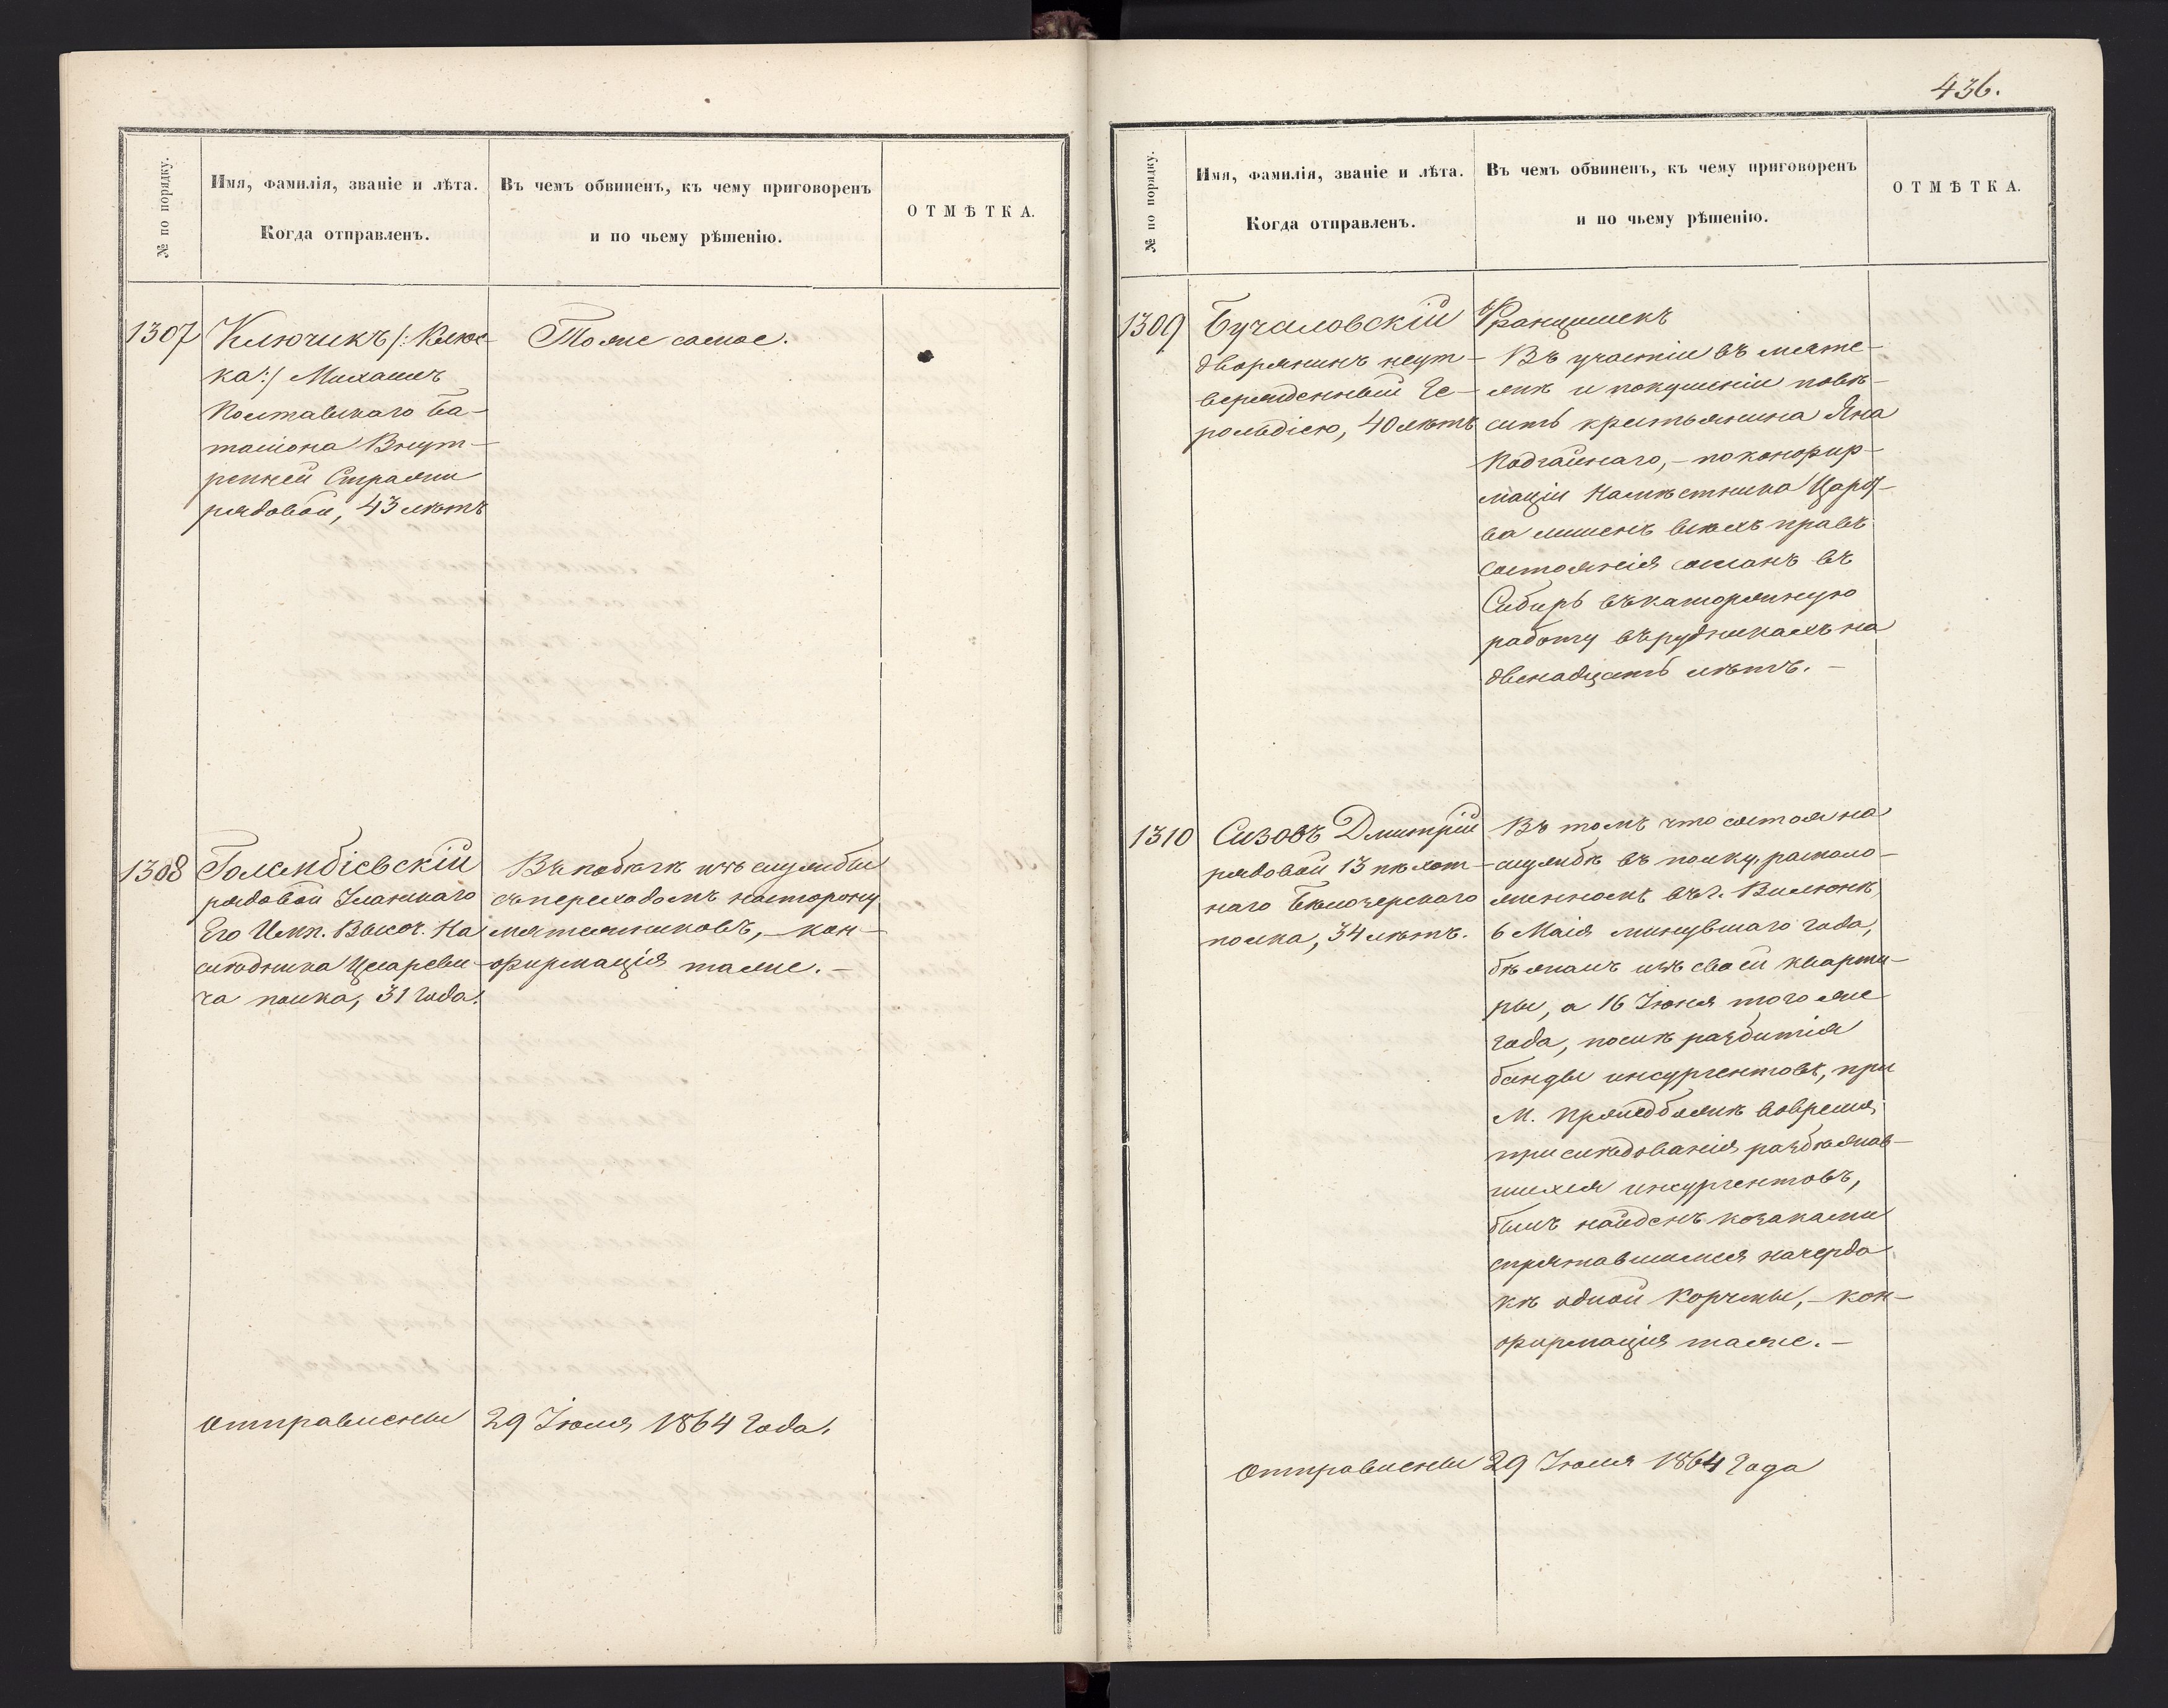 № по порядку.
Имя, фамилія, званіе и лѣта.
Когда отправленъ.
Въ чемъ обвиненъ, къ чему приговоренъ
и по чьему рѣшенію.
ОТМѢТКА.
1307
Ключикъ /: Клюс-
ка :/ Михаилъ
Полтавскаго ба-
таліона Внут-
ренней Стражи
рядовой, 43 лѣтъ
Тоже самое.
1308
Голембіевскій
рядовой Уланскаго
Его Имп. Высоч. На
слѣдника Цесареви-
ча полка, 31 года.
Въ побѣгѣ изъ службы
съ переходомъ на сторону
мятежниковъ, – кон-
фирмація таже. –
Отправлены 29 Іюля 1864 года.
436.
№ по порядку.
Имя, фамилія, званіе и лѣта.
Когда отправленъ.
Въ чемъ обвиненъ, къ чему приговоренъ
и по чьему рѣшенію.
ОТМѢТКА.
1309
Бучаловскій Францишекъ
дворянинъ неут-
вержденный Ге-
рольдіею, 40 лѣтъ
Въ участіи въ мяте-
жѣ и покушеніи повѣ-
сить крестьянина Яна
Подгайнаго, – по конфир-
маціи Намѣстника Царст-
ва лишенъ всѣхъ правъ
состоянія сосланъ въ
Сибирь въ каторжную
работу въ рудникахъ на
двенадцать лѣтъ. –
1310
Сизовъ Дмитрій
рядовой 13 пѣхот-
наго Бѣлозерскаго
полка, 34 лѣтъ.
Въ томъ что состоя на
службѣ въ полку, располо-
женномъ въ г. Вилюнѣ,
6 Маія минувшаго года,
бѣжалъ изъ своей кварти-
ры, а 16 Іюня того же
года, послѣ разбитія
банды инсургентовъ, при
М. Пржедбожѣ во время
присл​ѣдованія разбѣжав-
шихся инсургентовъ,
былъ найденъ козаками
спрятавшимся на черда
кѣ одной корчмы, – кон-
фирмація таже. –
Отправлены 29 Іюля 1864 года